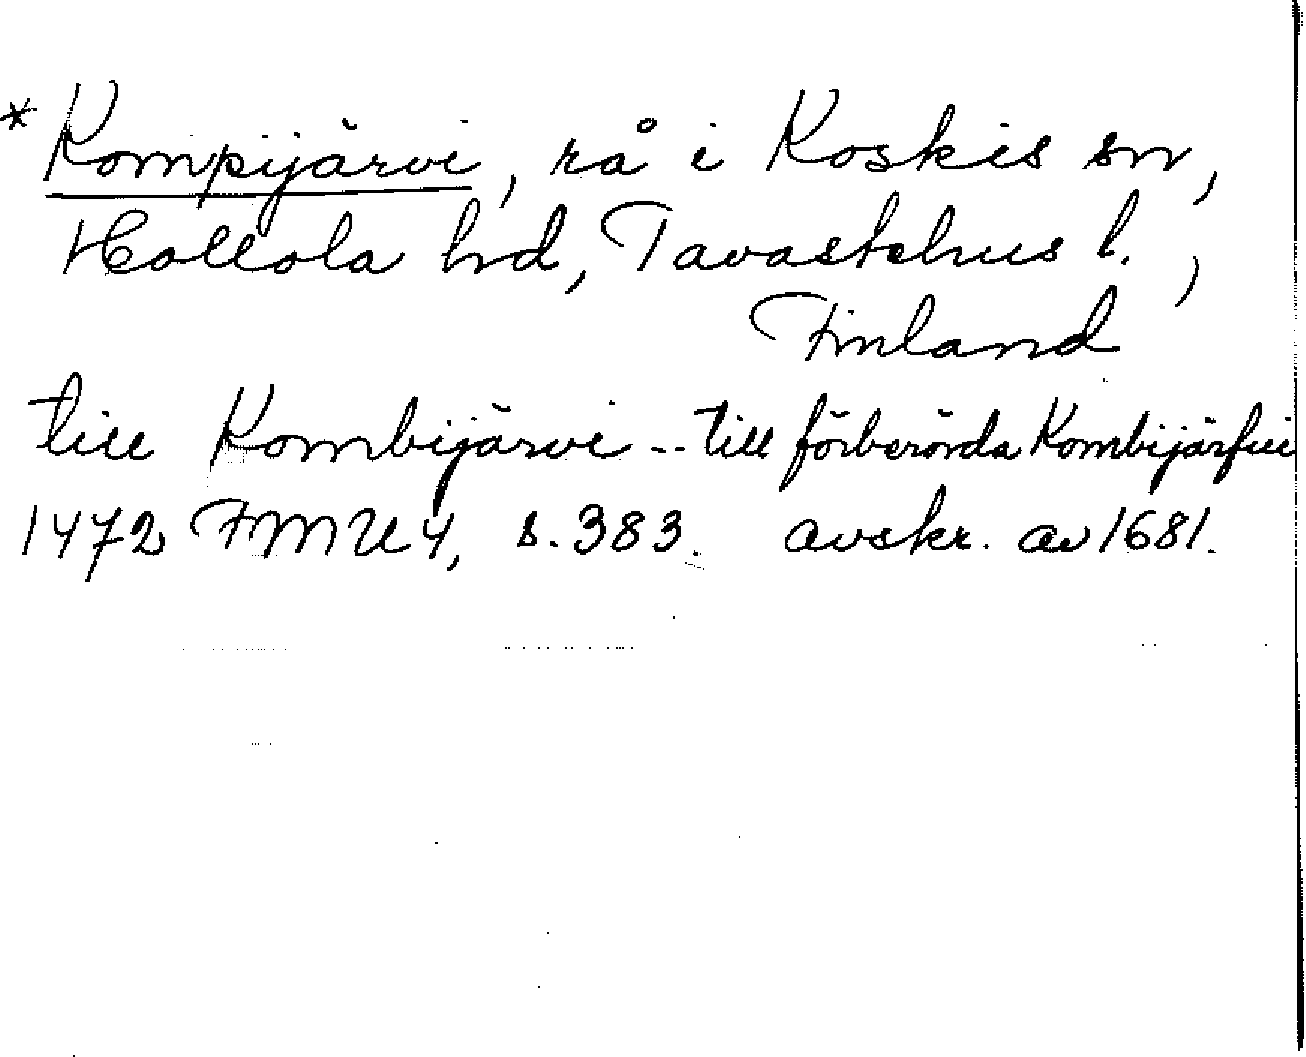 * Kompijärvi, rå i Koskis sn,
Hollola hd, Tavastehus l.,
Finland
till Kombijärvi -- till förberörda Kombijärfui
1472 FMU 4, s. 383. avskr. av 1681.